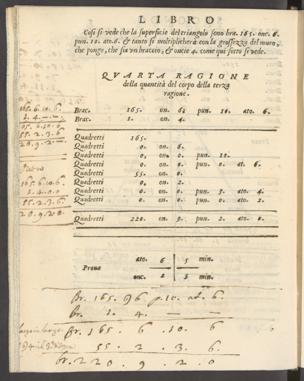 LIBRO
Così si vede che la superficie del triangolo sono brac. 165. onc. 6.
pun. 10. ato. 6. & tanto si multiplicherà con la grossezza del muro,
che pongo, che sia un braccio, & oncie 4. come qui sotto si vede.
QVARTA RAGIONE
della quantità del corpo della terza
ragione.
Brac. 165. on. 6. pun. 10. ato. 6.
Brac. 1. on. 4.
Quadretti 165.
Quadretti 0. on. 6.
Quadretti 0. on. 0. pun. 10.
Quadretti 0. on. 0. pun. 0. at. 6.
Quadretti 55. on. 0.
Quadretti 0. on. 2.
Quadretti 0. on. 0. pun. 3. ato. 4.
Quadretti 0. on. 0. pun. 0. ato. 2.
Quadretti 220. on. 9. pun. 2. ato. 0.
Prova
ato. 6 | 5 min.
onc. 2 | 3 min.
165. 6. 10. 6
55. 2. 3. 6
165. 6. 10. 6
55. 2. 3. 6
br. 165. 6 p. 10. at. 6.
br. 1. 4 — —
br. 165. 6 . 10 6
55 . 2 . 3 . 6
br. 220 . 9 . 2 . 0